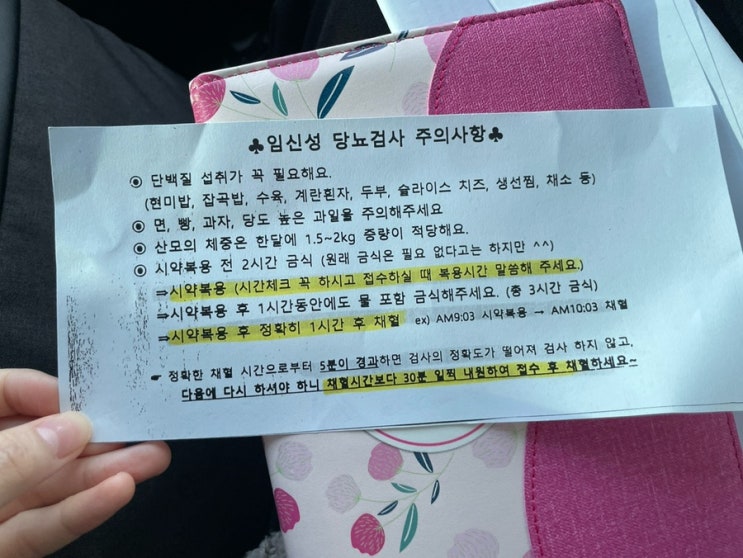 ♣임신성 당뇨검사 주의사항♣
◉ 단백질 섭취가 꼭 필요해요.
(현미밥, 잡곡밥, 수육, 계란흰자, 두부, 슬라이스 치즈, 생선찜, 채소 등)
◉ 면, 빵, 과자, 당도 높은 과일을 주의해주세요
◉ 산모의 체중은 한달에 1.5~2kg 증량이 적당해요.
◉ 시약복용 전 2시간 금식 (원래 금식은 필요 없다고는 하지만 ^^)
⇒시약복용 (시간체크 꼭 하시고 접수하실 때 복용시간 말씀해 주세요.)
⇒시약복용 후 1시간동안에도 물 포함 금식해주세요. (총 3시간 금식)
⇒시약복용 후 정확히 1시간 후 채혈 ex) AM9:03 시약복용 → AM10:03 채혈
☛ 정확한 채혈 시간으로부터 5분이 경과하면 검사의 정확도가 떨어져 검사 하지 않고,
다음에 다시 하셔야 하니 채혈시간보다 30분 일찍 내원하여 접수 후 채혈하세요~